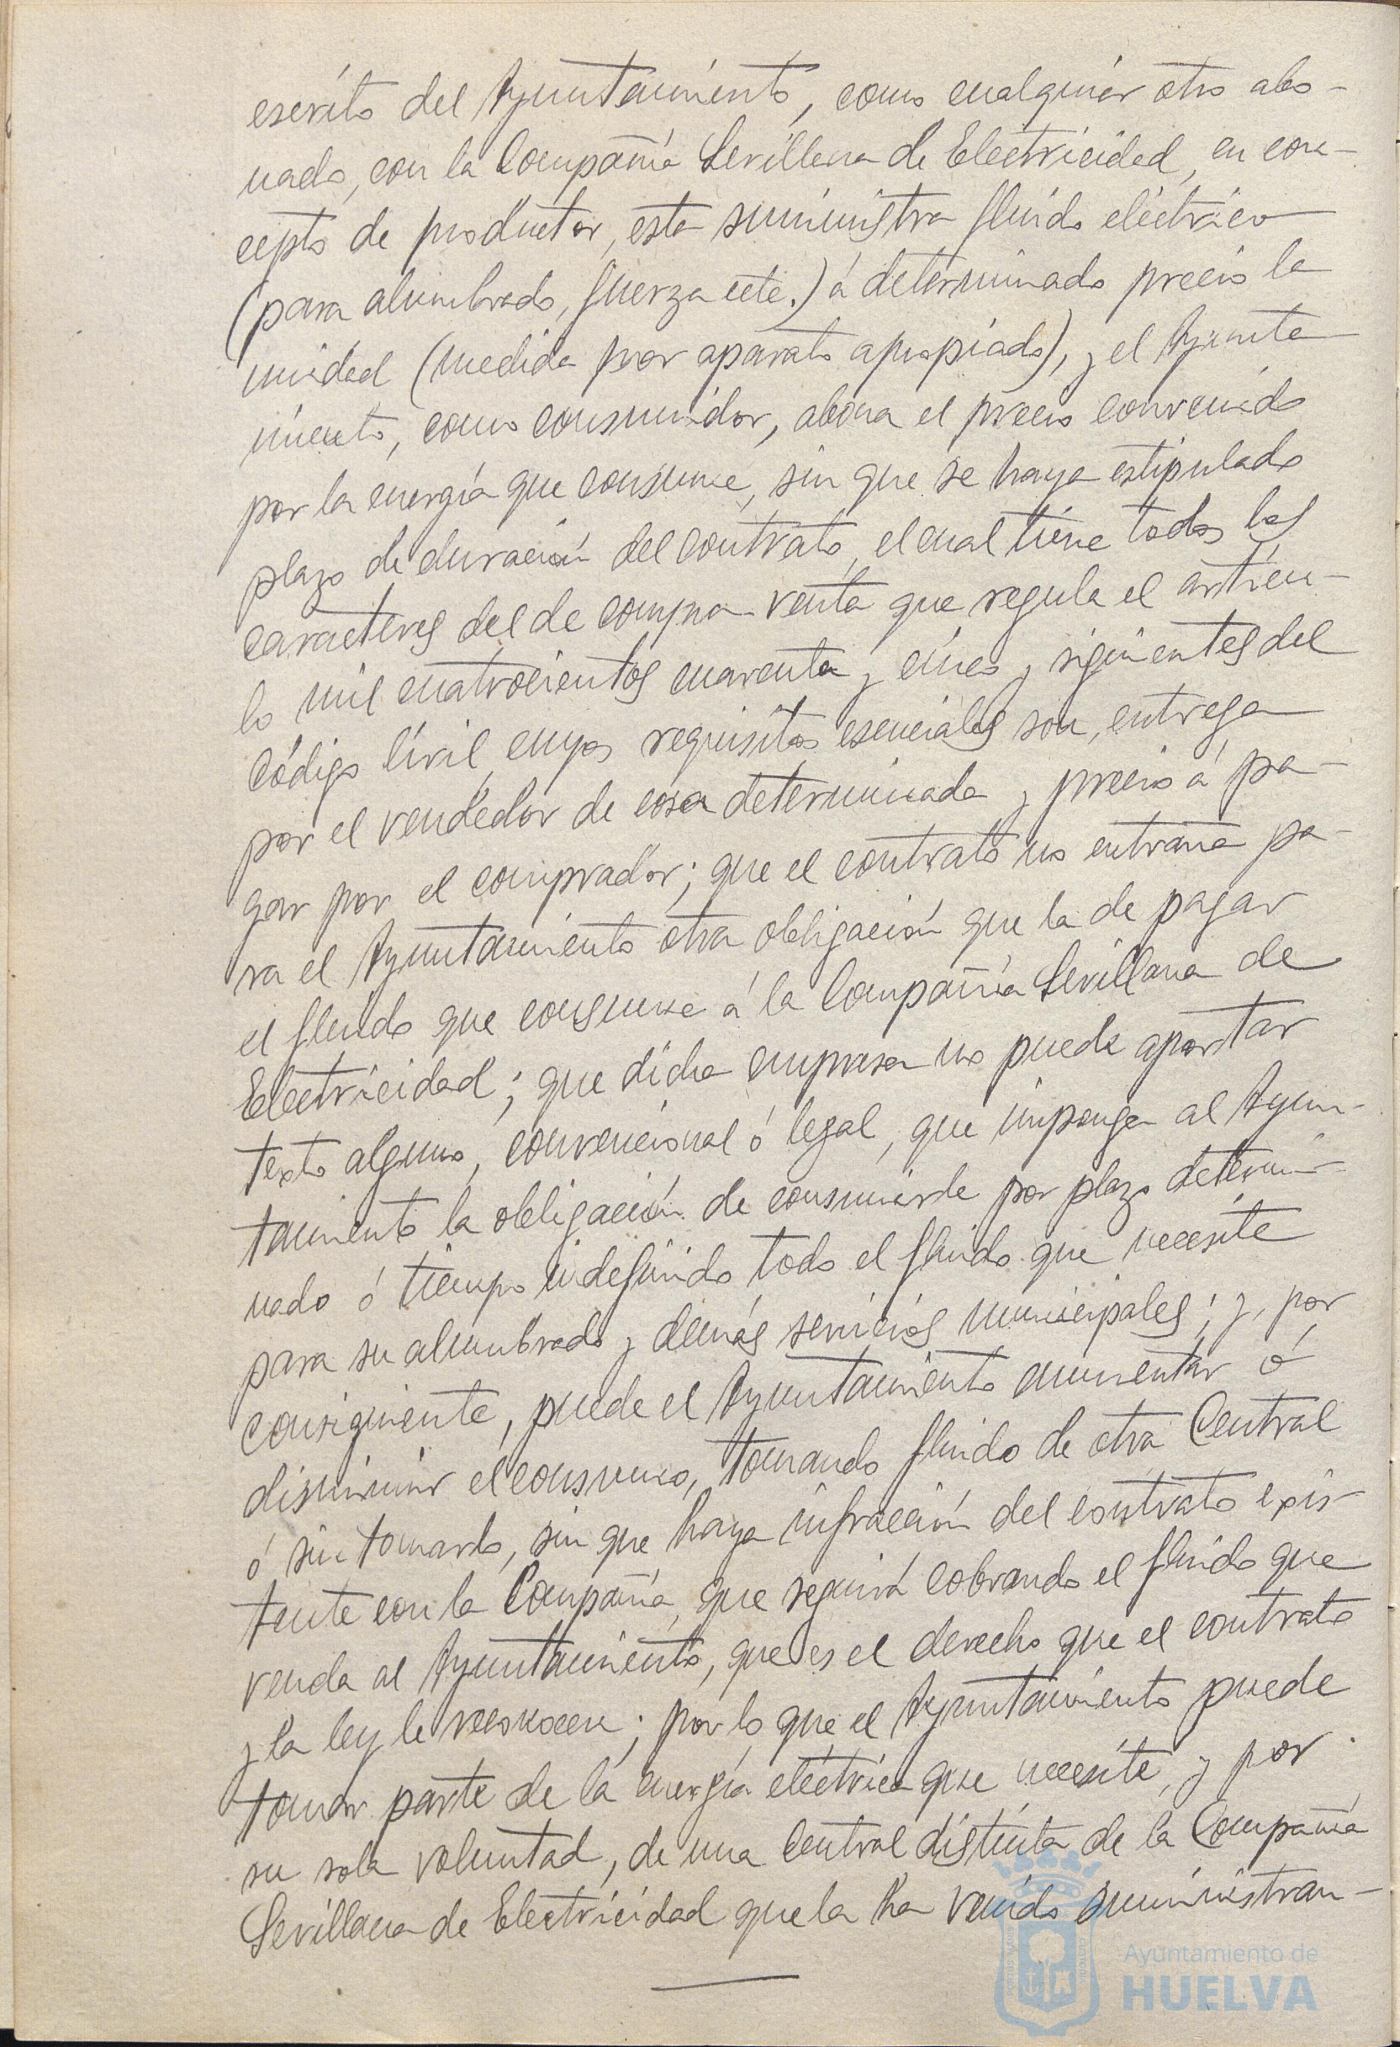 escrito del Ayuntamiento, como cualquier otro abo-
nado, con la Compañía Sevillana de Electricidad, en con-
cepto de productor, esta suministra fluido eléctrico
(para alumbrado, fuerza ectc.) á determinado precio la
unidad (medida por aparato apropiado), y el Ayunta
miento, como consumidor, abona el precio convenido
por la energía que consume, sin que se haya estipulado
plazo de duración del contrato, el cual tiene todos los
caracteres del de compra-venta que regula el artícu-
lo mil cuatrocientos cuarenta y cinco y siguientes del
Código Civil, cuyos requisitos esenciales son, entrega
por el vendedor de cosa determinada y precio á pa-
gar por el comprador; que el contrato no entraña pa-
ra el Ayuntamiento otra obligación que la de pagar
el fluido que consume á la Compañía Sevillana de
Electricidad; que dicha empresa no puede aportar
texto alguno, convencional ó legal, que imponga al Ayun-
tamiento la obligación de consumirle por plazo determi-
nado ó tiempo indefinido todo el fluido que necesite
para su alumbrado y demás servicios municipales; y, por
consiguiente, puede el Ayuntamiento aumentar ó
disminuir el consumo, tomando fluido de otra Central
ó sin tomarlo, sin que haya infracción del contrato exis-
tente con la Compañía, que seguirá cobrando el fluido que
venda al Ayuntamiento, que es el derecho que el contrato
y la ley le reconocen; por lo que el Ayuntamiento puede
tomar parte de la energía eléctrica que necesite, y por
su sola voluntad, de una Central distinta de la Compañía
Sevillana de Electricidad que la ha venido suministran-
Ayuntamiento de
HUELVA